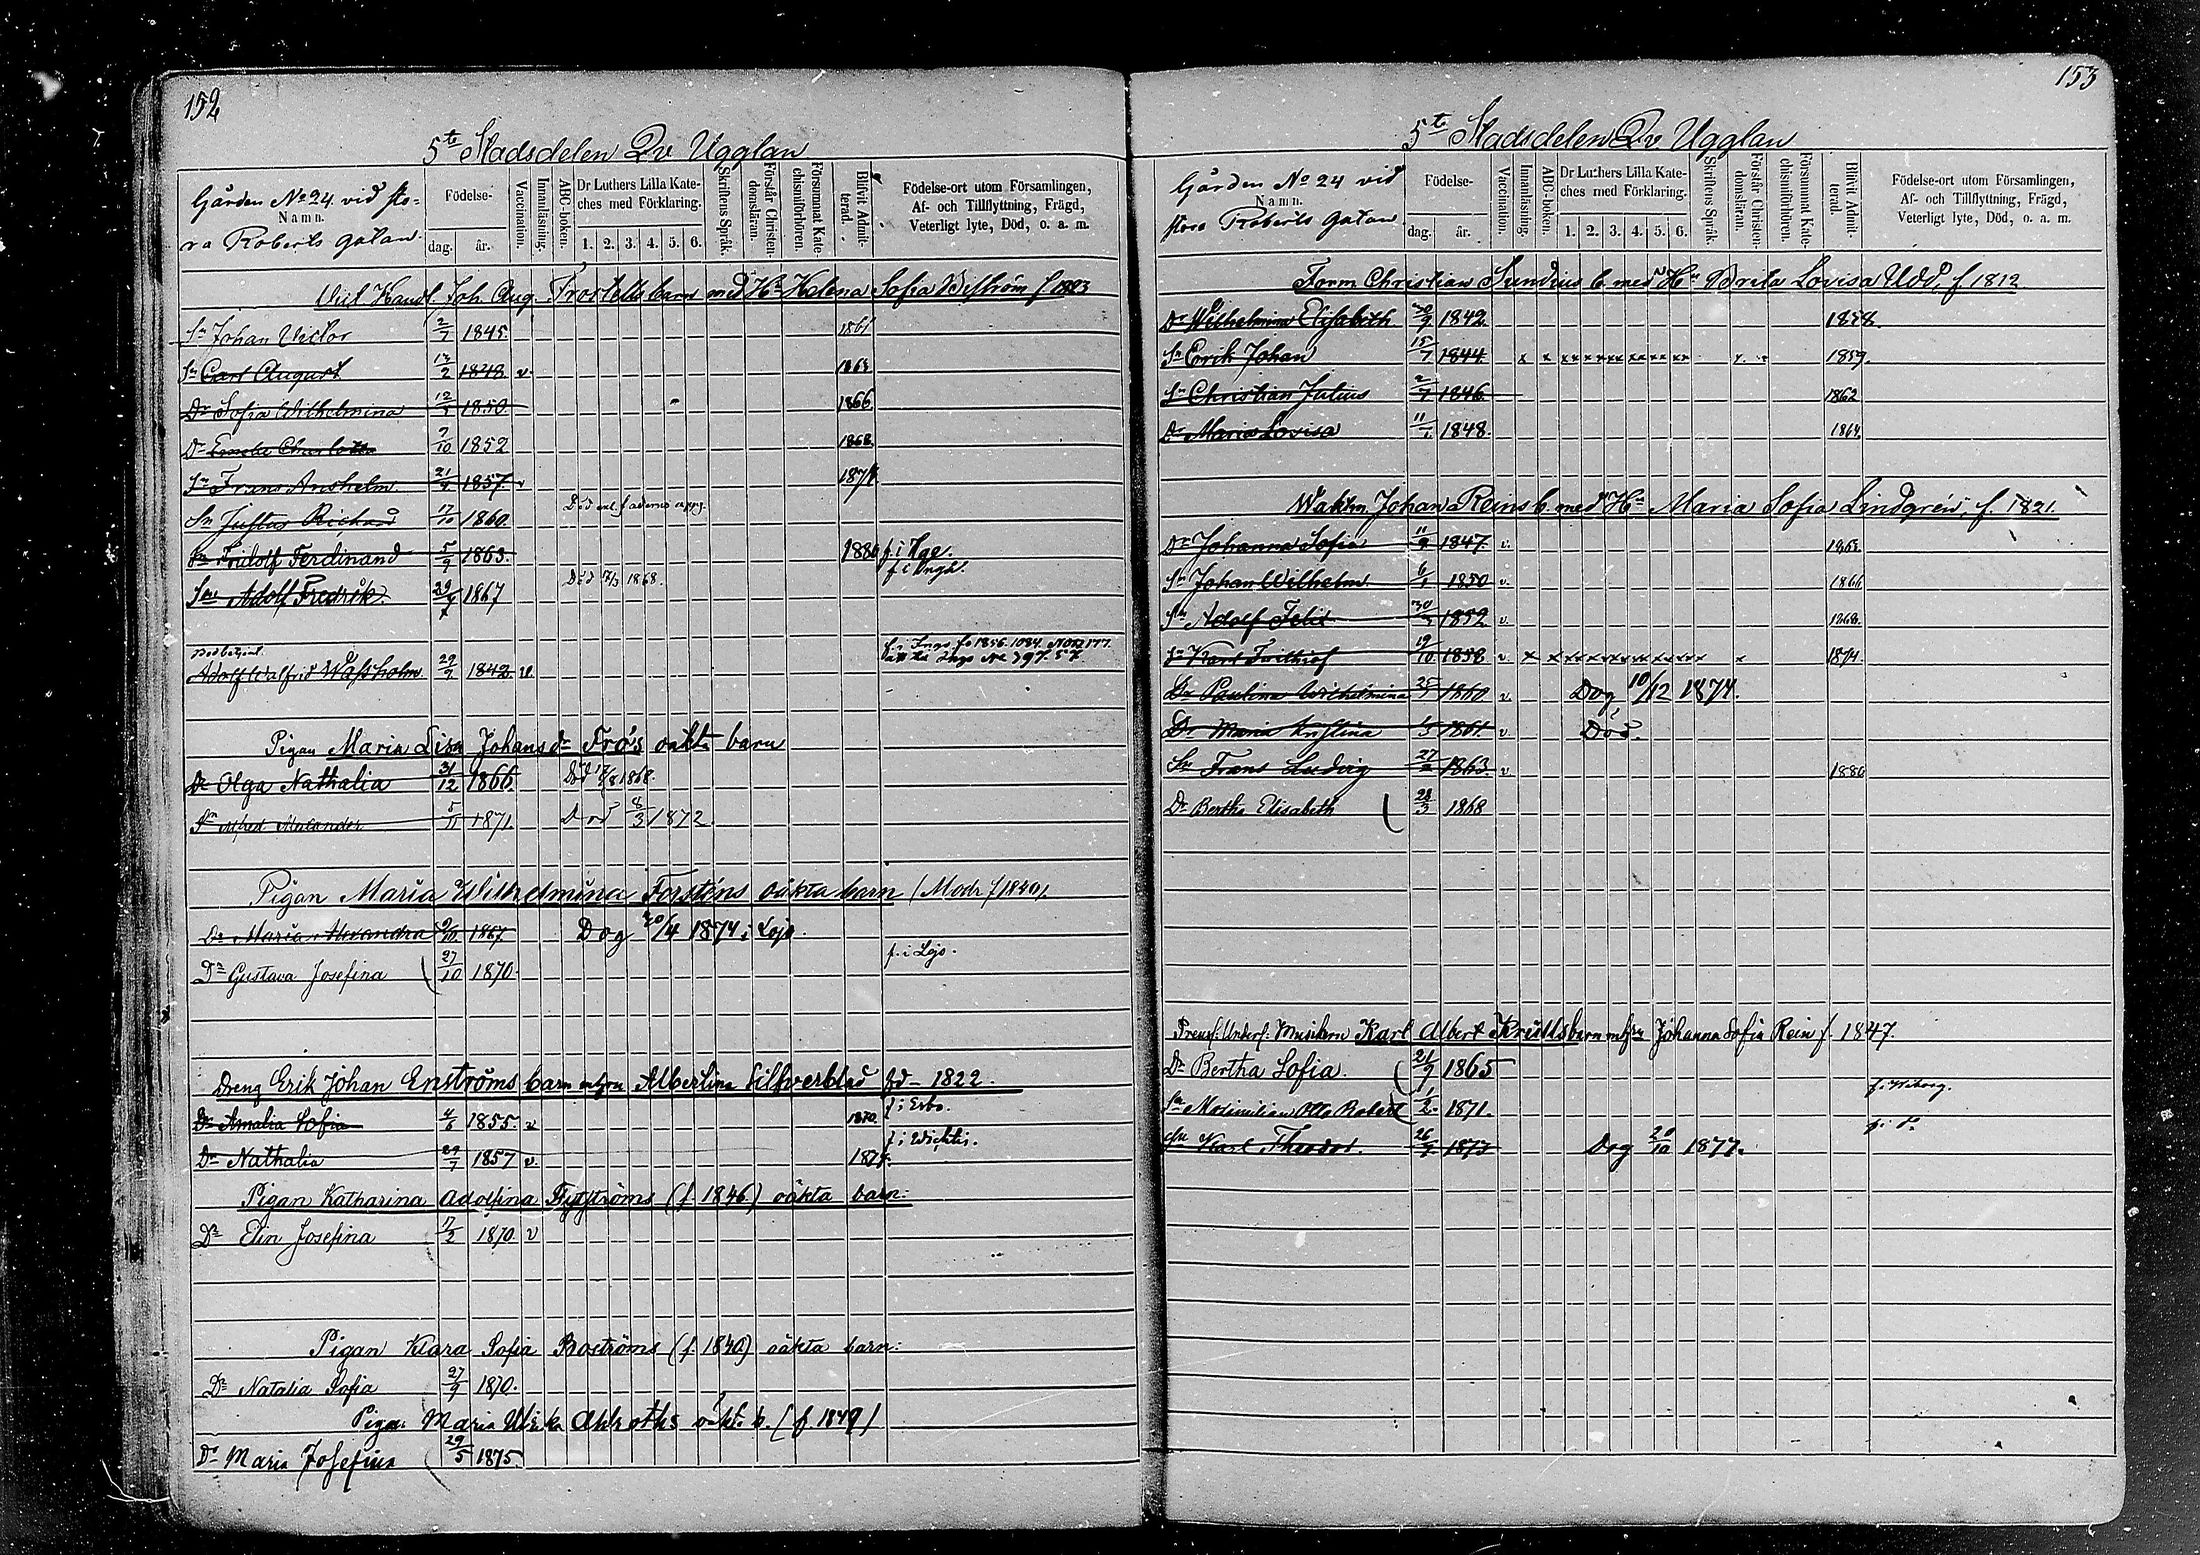 152
5te Stadsdelen Qv Ugglan
Gården No 24. vid sto-
Namn.
ra Roberts gatan
Födelse-
dag. år.
Vaccination.
Innanläsning.
ABC-boken.
Dr Luthers Lilla Kate-
ches med Förklaring.
1. 2. 3. 4. 5. 6.
Skriftens Språk.
Förstår Christen-
domsläran.
Försummat Kate-
chismiförhören.
Blifvit Admit-
terad.
Födelse-ort utom Församlingen,
Af- och Tillflyttning, Frägd,
Veterligt lyte, Död, o. a. m.
Handl. Joh. Aug. Frostells barn med Hu Helena Sofia f 1823
Sn Johan Victor 2/7 1845. 1861
Sn Carl August 2 1848 v 1865
Dr Sofia Wilhelmina 12 1850 1866
Dr Charlotta 7/10 1852 1868
Sn Frans Anshelm 21 1857 v 1874
Död enl. faderns uppg.
Sn Justus Richard 17/10 1860
Sn Fridolf Ferdinand 5/9 1863 1880 f. i Hge.
f i Ingå.
Död 1868.
Son Adolf Fredrik 29 1867
Adolf Walfrid Wassholm 29/7 1842 v.
Pigan Maria Lisa Johansdr Frös oäkta barn
Dr Olga Nathalia 31/12 1866 Död 1868.
Sn Alfred 5/11 1871. Död 8/3 1872
Pigan Maria Wilhelmina Forsténs oäkta barn (Modr f 1840).
Dr Maria Alexandra 1867 Dog 20/4 1874 i Lojo.
f. i Lojo.
Dr Gustava Josefina 27/10 1870
Dreng Erik Johan Enströms barn m hru Albertina Silfverblad fd - 1822.
f i Esbo.
Dr Amalia Sofia 4/6 1855 v 1870
f. i Wichtis.
Dr Nathalia 29/7 1857 v. 1874.
Pigan Katharina Adolfina (f. 1846) oäkta barn:
Dr Elin Josefina 7/2 1870 v
Pigan Klara Sofia Boströms (f. 1840) oäkta barn:
Dr Natalia Sofia 27/9 1870.
Pigan Maria Ulrika Ahlroths oäkt. b. (f 1849)
Dr Maria Josefina 29/5 1875
153
5te Stadsdelen Qv Ugglan
Gården No 24 vid
Namn.
stora Roberts gatan
Födelse-
dag. år.
Vaccination.
Innanläsning.
ABC-boken.
Dr Luthers Lilla Kate-
ches med Förklaring.
1. 2. 3. 4. 5. 6.
Skriftens Språk.
Förstår Christen-
domsläran.
Försummat Kate-
chismiförhören.
Blifvit Admit-
terad.
Födelse-ort utom Församlingen,
Af- och Tillflyttning, Frägd,
Veterligt lyte, Död, o. a. m.
Form. Christian Sundius b. med Hu Brita Lovisa Udd, f. 1812
Dr Wilhelmina Elisabeth 9 1842 1858.
Sn Erik Johan 15/7 1844 x x xx xx xx xx xx xx x 1859.
Sn Christian Julius 2/7 1846 1862
Dr Maria Lovisa 11/1 1848 1864
Waktm. Johan Reins b. med Hu Maria Sofia Lindgrén, f. 1821.
Dr Johanna Sofia 11/9 1847 v.
Sn Johan Wilhelm 6/1 1850 v 1866
Sn Adolf Felix 30 1852 v. 1868
Sn Karl Frithiof 19/10 v x x xx xx xx xx xx xx x 1874
Dr Paulina Wilhelmina 25 1860 v. Dog 10/12 1874.
Dr Maria Kristina 1861 v Död.
Sn Frans Ludvig 27 1863 v 1880
Dr Bertha Elisabeth 28/3 1868
Preuss. Unders. Musikern Karl Albert barn m hru Johanna Sofia Rein f. 1847.
Dr Bertha Sofia. 21/7 1865
f. i Wiborg.
Sn Maximilian Otto Robert 1/2 1871.
f. i d:o
Sn Karl Theodor. 26 1873 Dog 20/10 1877.